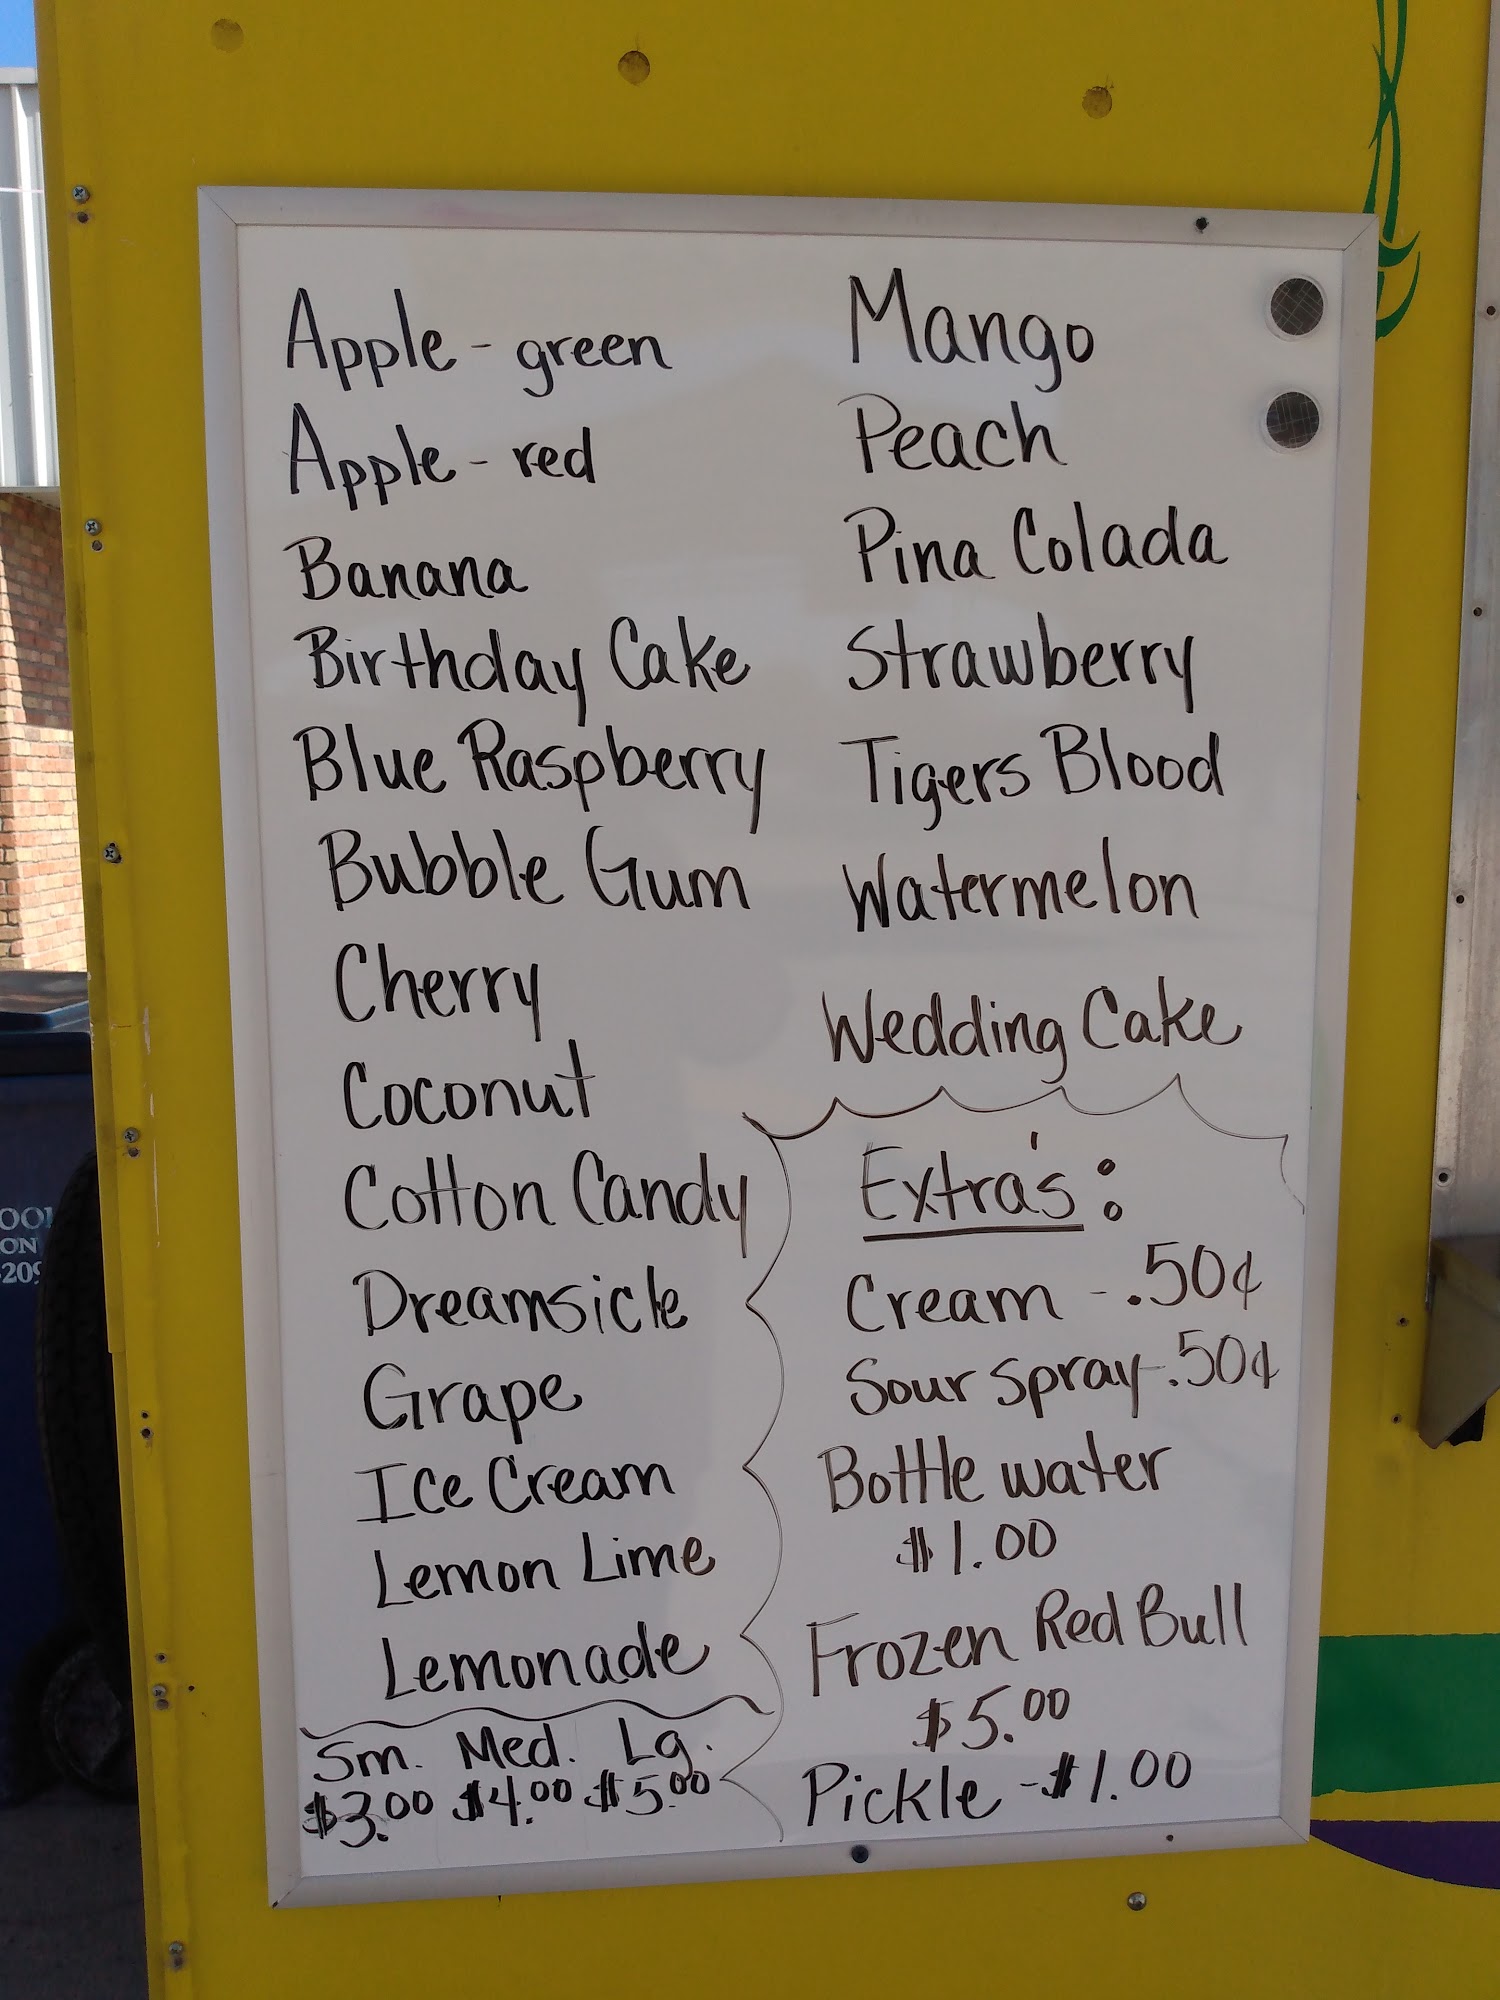 Apple - green
Apple - red
Banana
Birthday Cake
Blue Raspberry
Bubble Gum
Cherry
Coconut
Cotton Candy
Dreamsicle
Grape
Ice Cream
Lemon Lime
Lemonade
Sm. Med. Lg.
$3.00 $4.00 $5.00
Mango
Peach
Pina Colada
Strawberry
Tigers Blood
Watermelon
Wedding Cake
Extra's:
Cream - .50¢
Sour spray - .50¢
Bottle water
$1.00
Frozen Red Bull
$5.00
Pickle - $1.00
ON